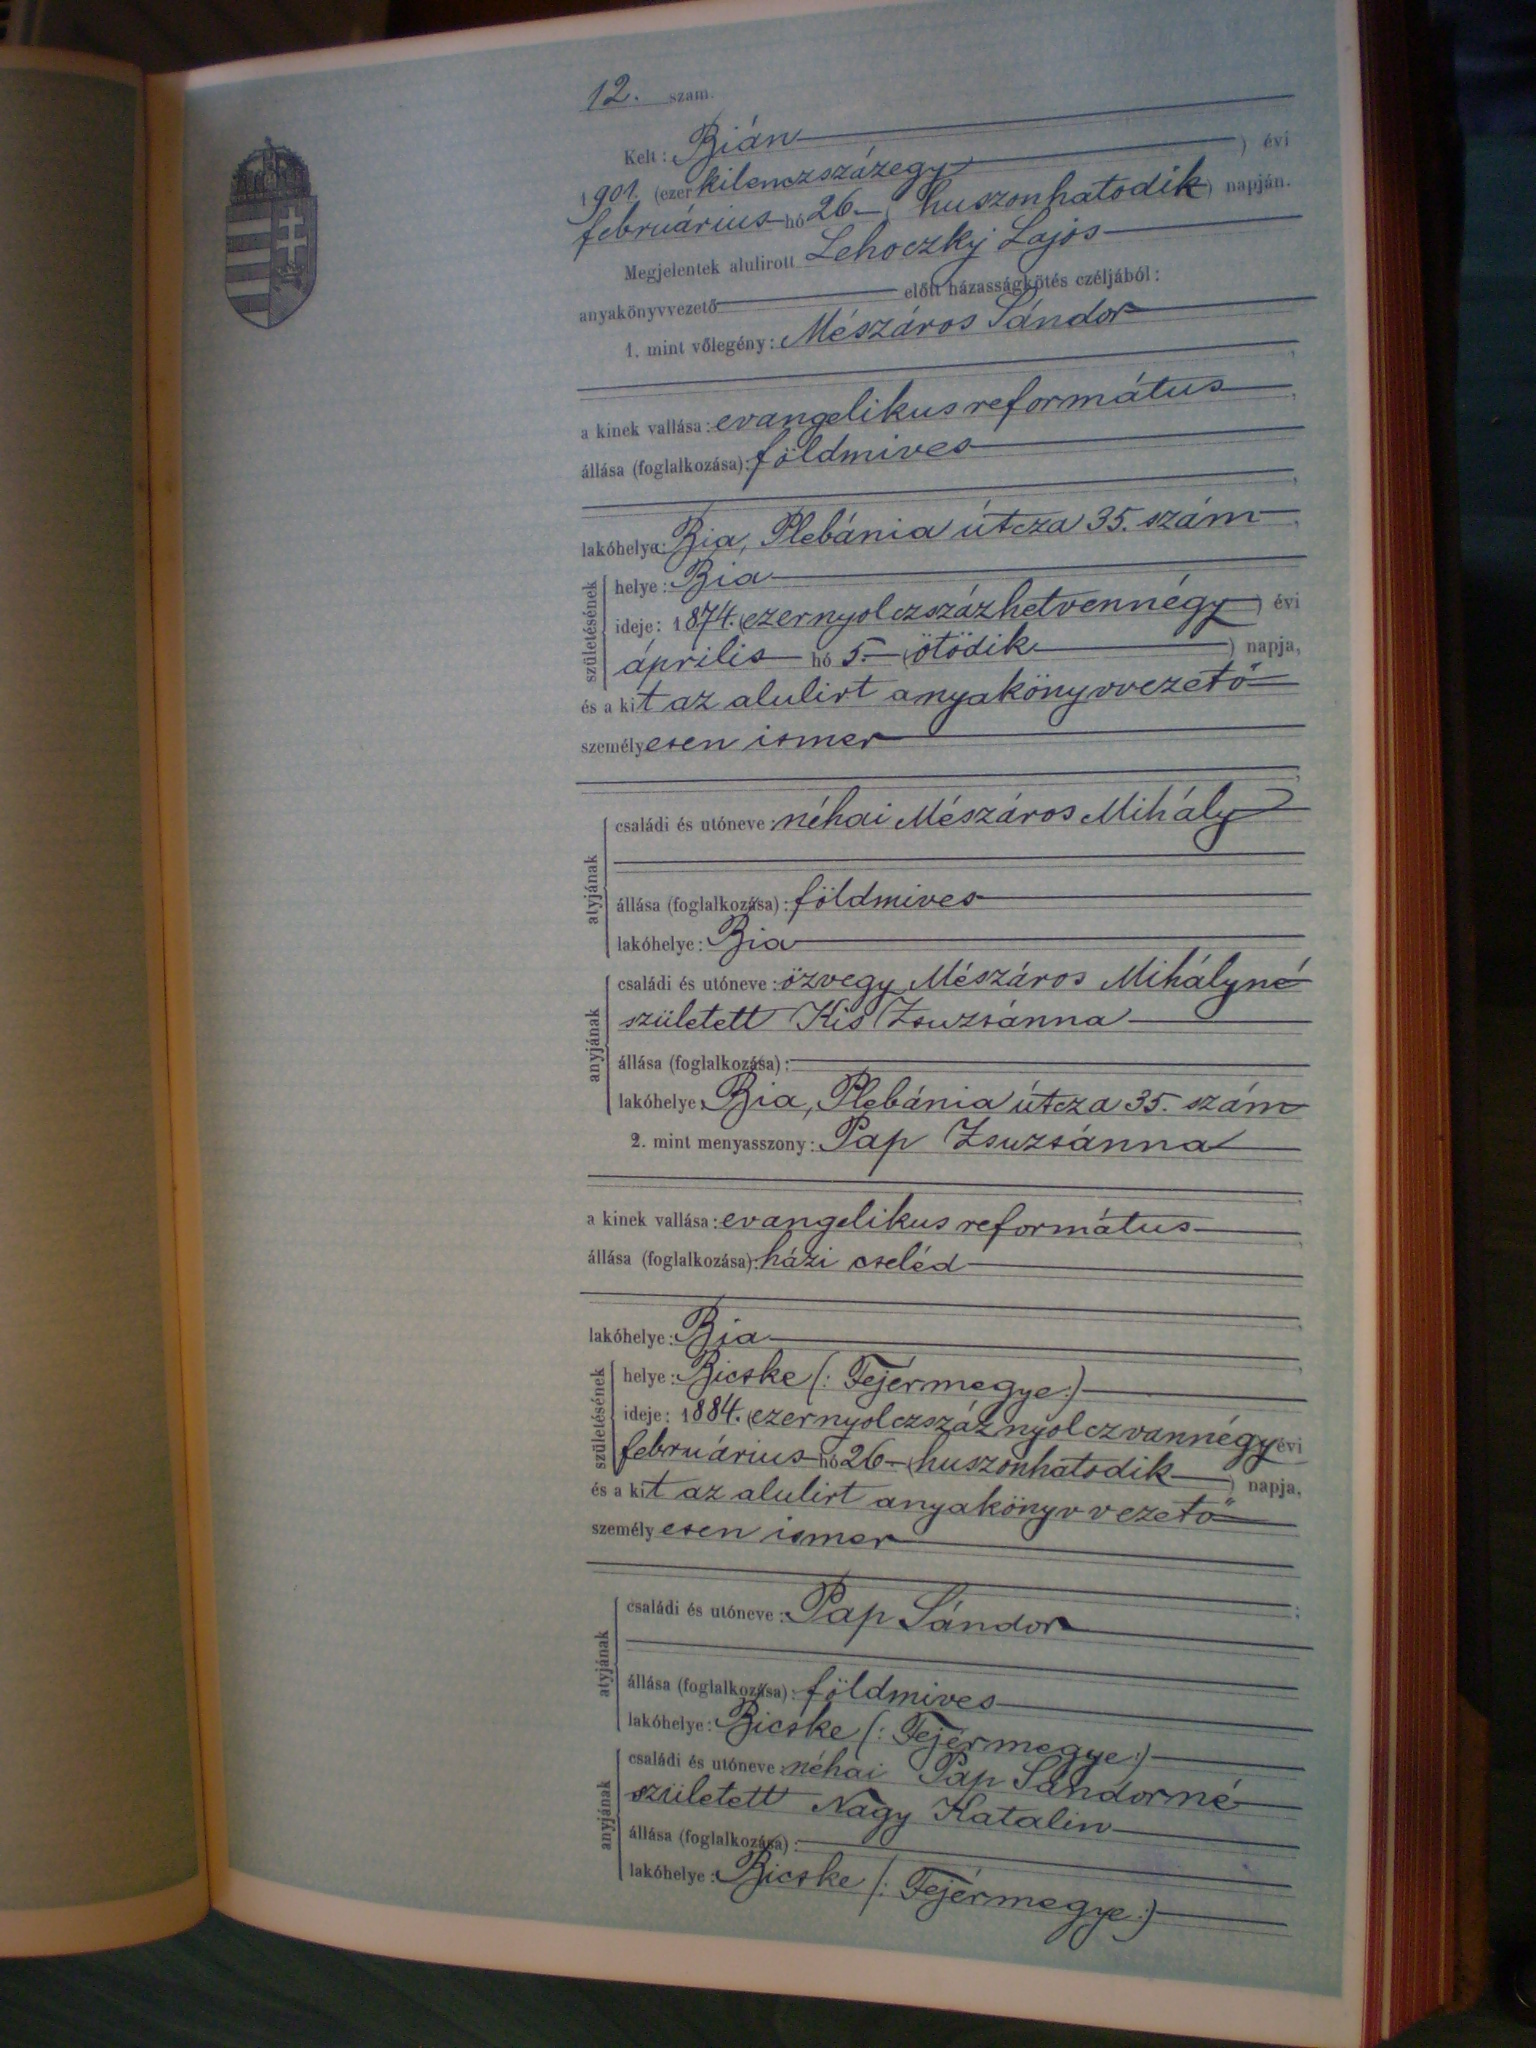 12. szám.
Kelt: Bián
1901. (ezerkilenczszázegy) évi
februárius hó 26. (huszonhatodik) napján.
Megjelentek alulirott Lehoczky Lajos
anyakönyvvezető előtt házasságkötés czéljából:
1. mint vőlegény: Mészáros Sándor
a kinek vallása: evangelikus református
állása (foglalkozása): földmives
lakóhelye: Bia, Plebánia útcza 35. szám
születésének
helye: Bia
ideje: 1874. (ezernyolczszázhetvennégy) évi
április hó 5. (ötödik) napja,
és a kit az alulirt anyakönyvvezető
személyesen ismer
atyjának
családi és utóneve: néhai Mészáros Mihály
állása (foglalkozása): földmives
lakóhelye: Bia
anyjának
családi és utóneve: özvegy Mészáros Mihályné
született Kis Zsuzsánna
állása (foglalkozása):
lakóhelye: Bia, Plebánia útcza 35. szám
2. mint menyasszony: Pap Zsuzsánna
a kinek vallása: evangelikus református
állása (foglalkozása): házi cseléd
lakóhelye: Bia
születésének
helye: Bicske (: Fejérmegye :)
ideje: 1884. (ezernyolczszáznyolczvannégy évi
februárius hó 26 (huszonhatodik) napja,
és a kit az alulirt anyakönyvvezető
személyesen ismer
atyjának
családi és utóneve: Pap Sándor
állása (foglalkozása): földmives
lakóhelye: Bicske (: Fejérmegye :)
anyjának
családi és utóneve: néhai Pap Sándorné
született Nagy Katalin
állása (foglalkozása):
lakóhelye: Bicske (: Fejérmegye :)